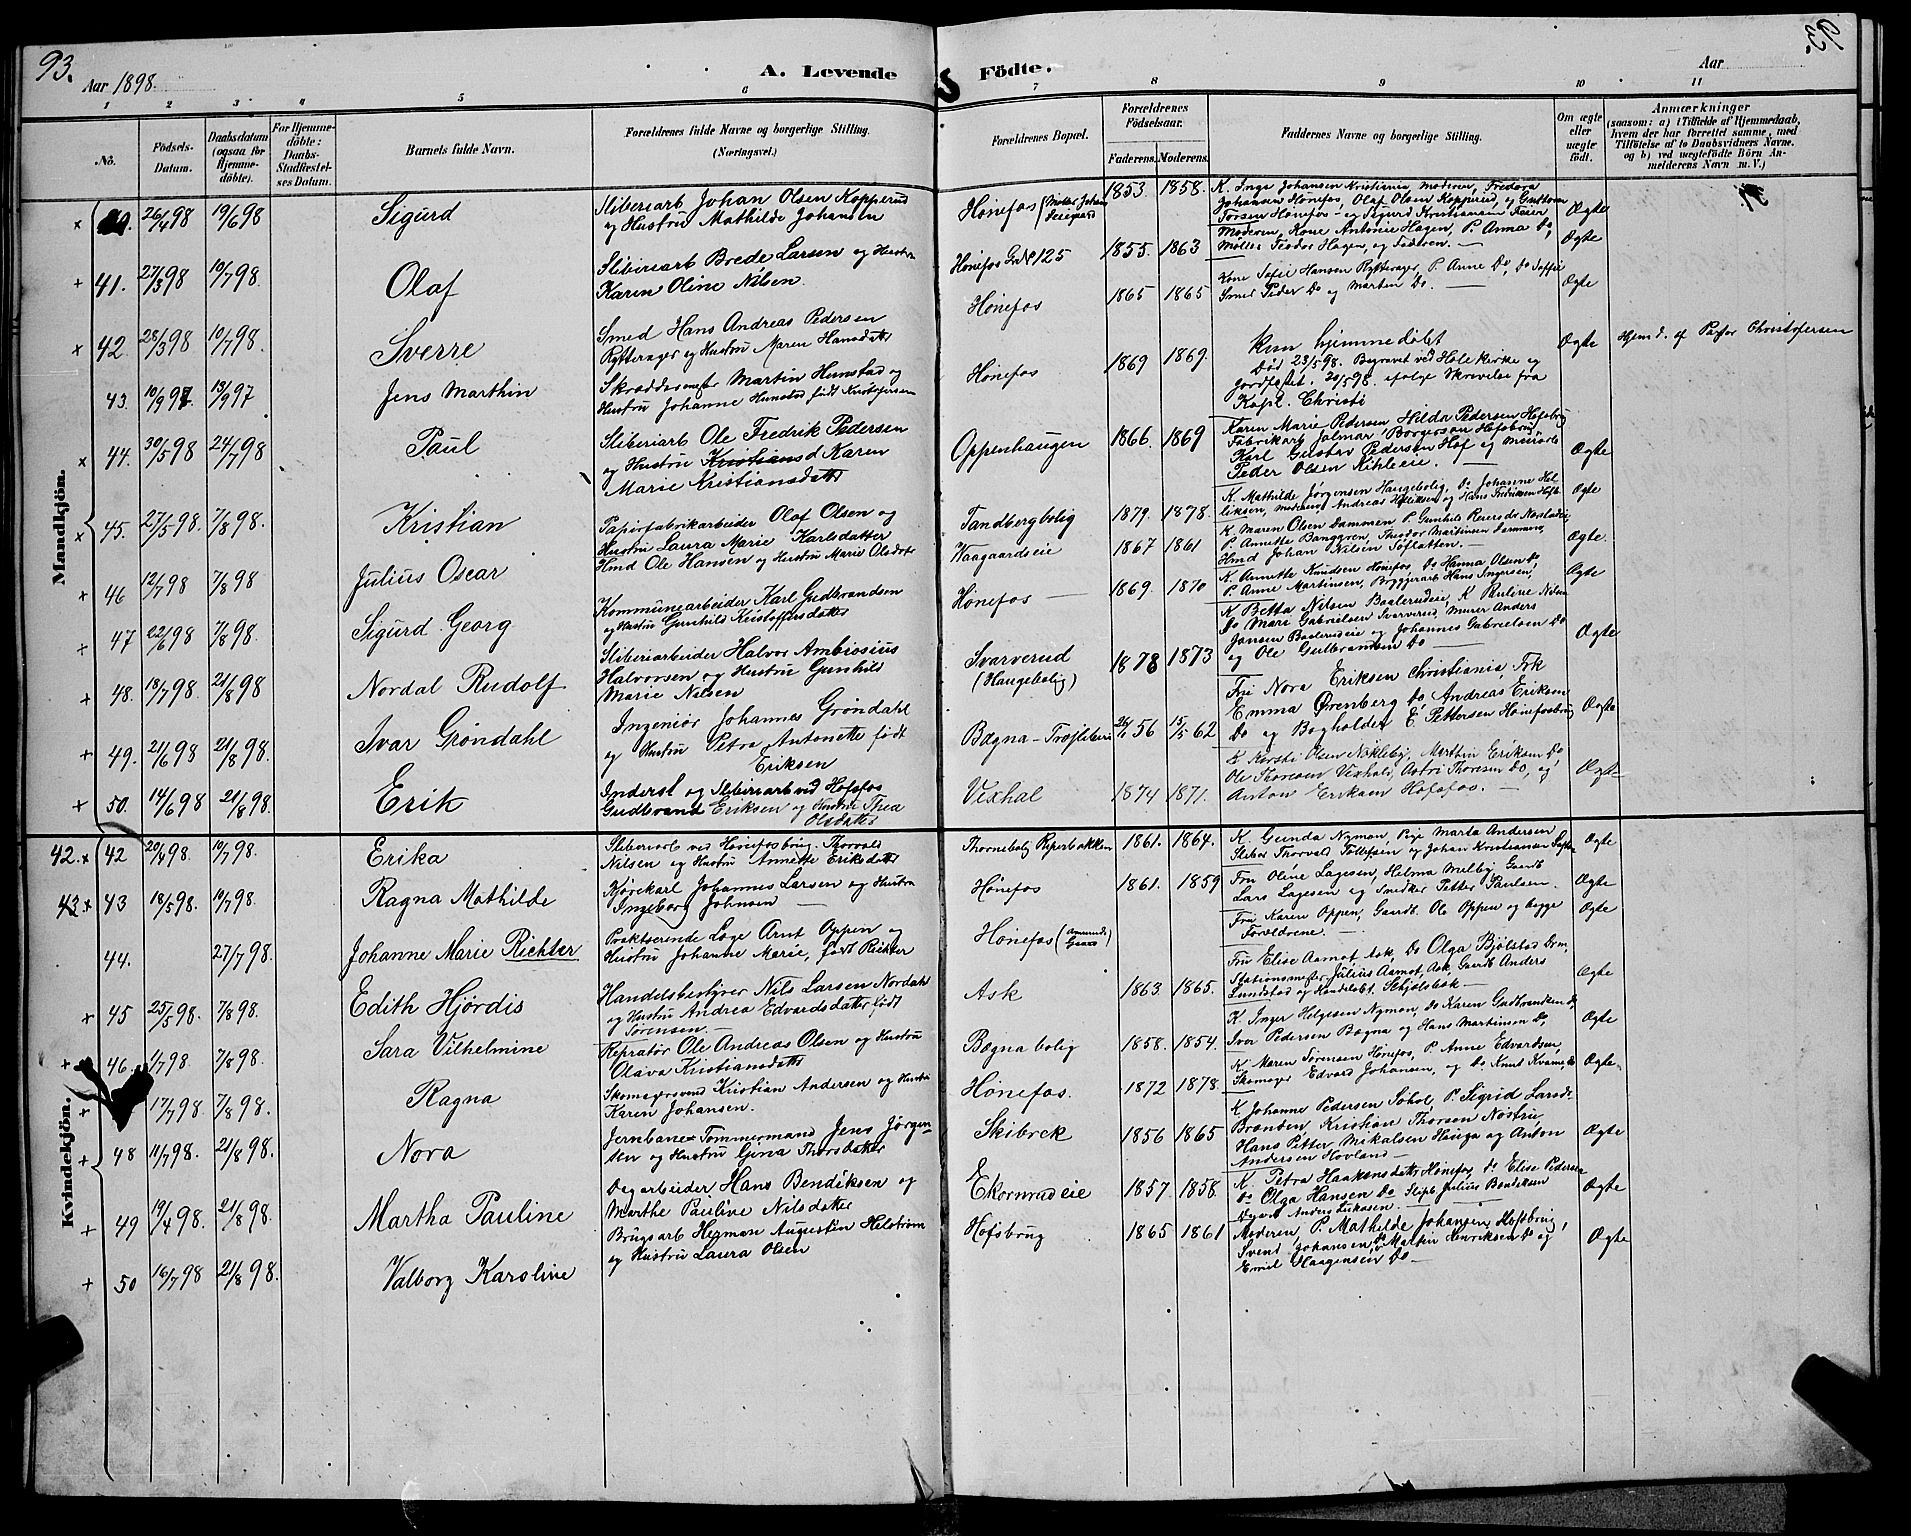 93.
93.
Aar 1898.
A. Levende
Födte.
Aar
1
2
3
4
5
6
7
8
9
10
11
No.
Födsels-
Datum.
Daabsdatum
(ogsaa for
Hjemme-
döbte).
For Hjemme-
döbte:
Daabs-
Stadfæstel-
ses Datum.
Barnets fulde Navn.
Forældrenes fulde Navne og borgerlige Stilling.
(Næringsvei.)
Forældrenes Bopæl.
Forældrenes
Födselsaar.
Faderens.
Moderens.
Faddernes Navne og borgerlige Stilling.
Om ægte
eller
uægte
födt.
Anmærkninger
(saasom: a) i Tilfælde af Hjemmedaab,
hvem der har forrettet samme, med
Tilföielse af to Daabsvidners Navne.
og b) ved uægtefödte Börn An-
melderens Navn m. V.)
Mandkjön.
26/4 98 19/6 98 Sigurd
Sliberiarb Johan Olsen Kopperud
og Hustru Mathilde Johansen
Hönefos 1853 1858.
K. Inga Johansen Kristiania, Moderen, Fredora
Johansen Hönefos, Olaf Olsen Kopperud, og Guttorm
Ægte
41. 27/3 98 10/7 98. Olaf
Sliberiarb Brede Larsen og Hustru
Karen Oline Nilsen.
Hönefos GrN 125 1855. 1863
Moderen, Kone Antonie Hagen, P. Anna Do,
Möller Teodor Hagen, og Faderen.
Ægte
42. 28/3 98 10/7 98. Sverre
Smed Hans Andreas Pedersen
Rytterager og Hustru Maren Hansdatter
Hönefos 1865 1865
Kone Sofie Hansen Rytterager, P. Anne Do, Do Soffie
Smed Peder Do og Martin Do.
Ægte
43. 10/9 97. 13/9 97 Jens Marthin
Skræddermester Martin Hunstad og
Hustru Johanne Hunstad födt Kristofersen
Hönefos 1869 1869.
Kun hjemmedöbt
Död 23/5 98. Begravet ved Hole Kirke og
jordfæstet. 20/5 98. ifölge Skrivelse fra
Kapl. Christi
Ægte
Hjemd. af Pastor Christofersen
44. 30/5 98 24/7 98 Paul
Sliberiarb Ole Fredrik Pedersen
og Hustru Kristiansd Karen
Marie Kristiansdatter
Oppenhaugen 1866. 1869
Karen Marie Pedersen Hilda Pedersen Hofsbrug
Fabrikarb Jalmar Borgersen Hofsbrug,
Karl Gustav Pedersen Hof og
Peder Olsen
Ægte
45. 27/5 98. 7/8 98. Kristian
Papirfabrikarbeider Olaf Olsen og
Hustru Laura Marie Karlsdatter
Tandbergbolig 1879. 1878.
K. Mathilde Jörgensen Haugebolig, Do Johanne
Ægte
46 12/7 98 7/8 98 Julius Oscar
Hmd Ole Hansen og Hustru Marie Olsdatr
Vaagaardseie 1867 1861
K. Maren Olsen Dammen P. Gunhild
P. Annette Banggren, Theodor Martinsen Dammen,
Hmd Johan Nilsen
Ægte.
47 22/6 98 7/8 98. Sigurd Georg
Kommunearbeider Karl Gudbrandsen
og Hustru Gunhild Kristoffersdatter
Hönefos 1869. 1870
K. Annette Knudsen Hönefos, Do Hanna Olsen Do,
P. Anne Martinsen, Byggerarb Hans Ingersen,
Ægte
48. 18/7 98. 21/8 98 Nordal Rudolf
Sliberiarbeider Halvor Ambrosius
Halvorsen og Hustru Gunhild
Marie Nilsen
Svarverud
(Haugebolig)
1878 1873
K Betta Nilsen Baalerudeie, K Pauline Nilsen
Do Mari Gabrielsen Svarverud, murer Anders
Jansen Baalerudeie og Johannes Gabrielsen Do
og Ole Gulbransen Do
Ægte
49. 21/6 98 21/8 98. Ivar Gröndahl
Ingeniör Johannes Gröndahl
og Hustru Petra Antonette födt
Eriksen
Bægna-Træsliberi 56 15/5 62
Fru Nora Eriksen Christiania, Frk
Emma Örenberg Do Andreas Eriksen
Do og Bogholder E. Pettersen Hönefosbrug
Ægte
50. 14/6 98 21/8 98. Erik
Inderst og Sliberiarb ved Hofsfos
Gudbrand Eriksen og Hustru Thea
Olsdatter
Vexhal 1874 1871.
K Kersti Olsen Nökleby, Marthin Eriksen Do
Ole Thoresen Vexhald, Astri Thoresen Do, og
Anton Eriksen Hofsfos.
Ægte
Kvindekjön.
42. 42 20/4 98. 10/7 98. Erika
Sliberiarb ved Hönefosbrug. Thorvald
Nilsen og Hustru Annette Eriksdatter
Thornebolig Reperbakken 1861. 1864.
K. Gunda Nyman, Pige Marta Andersen
Sliber Thorvald Tollefsen og Johan Kristiansen
Ægte
43 43 18/5 98. 10/7 98. Ragna Mathilde
Kjörekarl Johannes Larsen og Hustru
Ingeborg Johnsen
Hönefos 1861. 1859
Fru Oline Lagesen, Helma Melby Gaardb
Lars Lagesen og Snedker Petter Paulsen.
Ægte
44. 27/7 98. Johanne Marie Richter
Praktserende Læge Arnt Oppen og
Hustru Johanne Marie, födt Richter
Hönefos
Fru Karen Oppen, Gaardb. Ole Oppen og begge
Forældrene.
Ægte
45 25/5 98. 7/8 98. Edith Hjördis
Handelsbestyrer Nils Larsen Nordahl
og Hustru Andrea Edvardsdatter födt
Sörensen.
Ask 1863 1865.
Fru Elise Aamot Ask, Do Olga Bjölstad Do,
Stationsmester Julius Aamot, Ask, Gaardb Anders
Lundstad og Handelsbt. Skjolsbek
Ægte
46. 1/7 98. 7/8 98. Sara Vilhelmine
Repratör Ole Andreas Olsen og Hustru
Olava Kristiansdatter
Bægna bolig 1858. 1854.
K. Inger Helgesen Nyman, Do Karen Gudbrandsen Do,
Iver Pedersen Bægna og Hans Martinsen Do,
Ægte
17/7 98. 7/8 98. Ragna
Skomagersvend Kristian Andersen og Hustru
Karen Johansen.
Hönefos. 1872 1878
K. Maren Sörensen Hönefos, P. Anne Edvardsen,
Skomager Edvard Johansen, og Do Knud Kvame, Do
Ægte.
48 11/7 98. 21/8 98. Nora
Jernbane Tömmermand Jens Jörgen-
sen og Hustru Gina Thorsdatter
Skibrek 1856 1865
K. Johanne Pedersen Sohol, P. Sigrid Larsdr.
Brænden Kristian Thorsen Nöstru
Hans Petter Mikalsen Hauga og Anton
Andersen Hovland
Ægte
49 19/4 98. 21/8 98. Martha Pauline
Dagarbeider Hans Bendiksen og
Marthe Pauline Nilsdatter
Ekornrud eie 1857. 1858.
K. Petra Haakensdatter Hönefos, Do Elise Pedersen
Do Olga Hansen Do Slipb Julius Bendiksen
Anders Lukasen.
Ægte
50 16/7 98 21/8 98. Valborg Karoline
Brugsarb Herman Augustin Helström
og Hustru Laura Olsen
Hofsbrug 1865 1861
Moderen, P. Mathilde Johansen, Hofsbrug,
Svend Johansen Do Martin Henriksen Do og
Emil Haagensen Do
Ægte